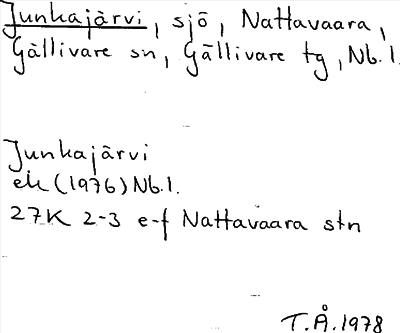 Junkajärvi, sjö, Nattavaara,
Gällivare sn, Gällivare tg, Nb.l.
Junkajärvi
ek (1976) Nb.l.
27K 2-3 e-f Nattavaara stn
T.Å. 1978